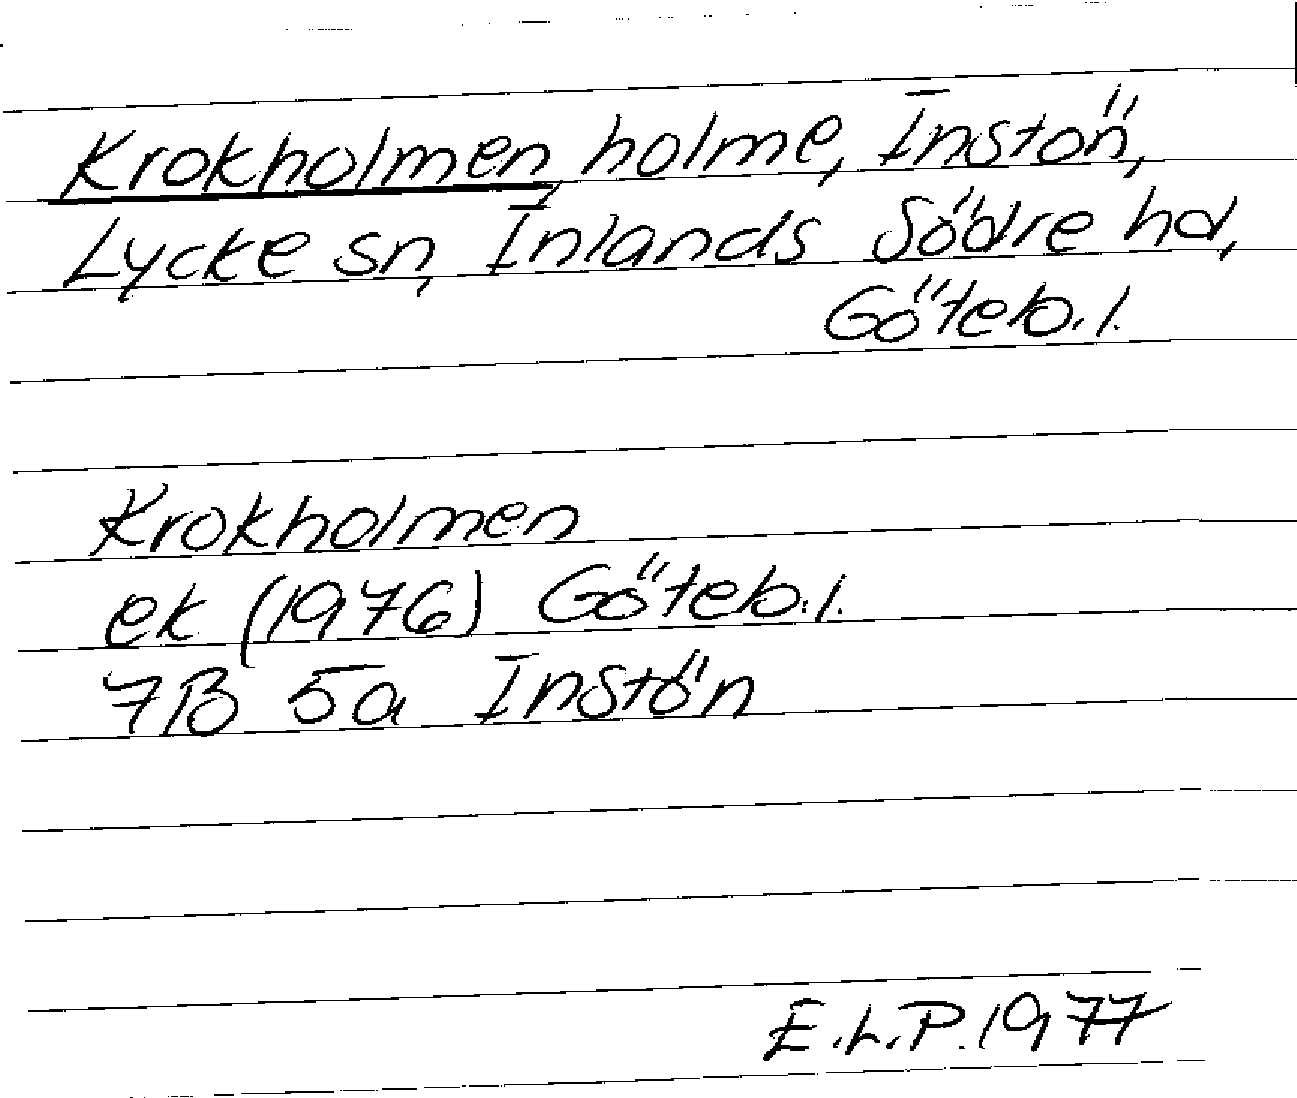 Krokholmen, holme, Instön,
Lycke sn, Inlands Södre hd,
Göteb.l.
Krokholmen
ek (1976) Göteb.l.
7B 5a Instön
E.L.P. 1977